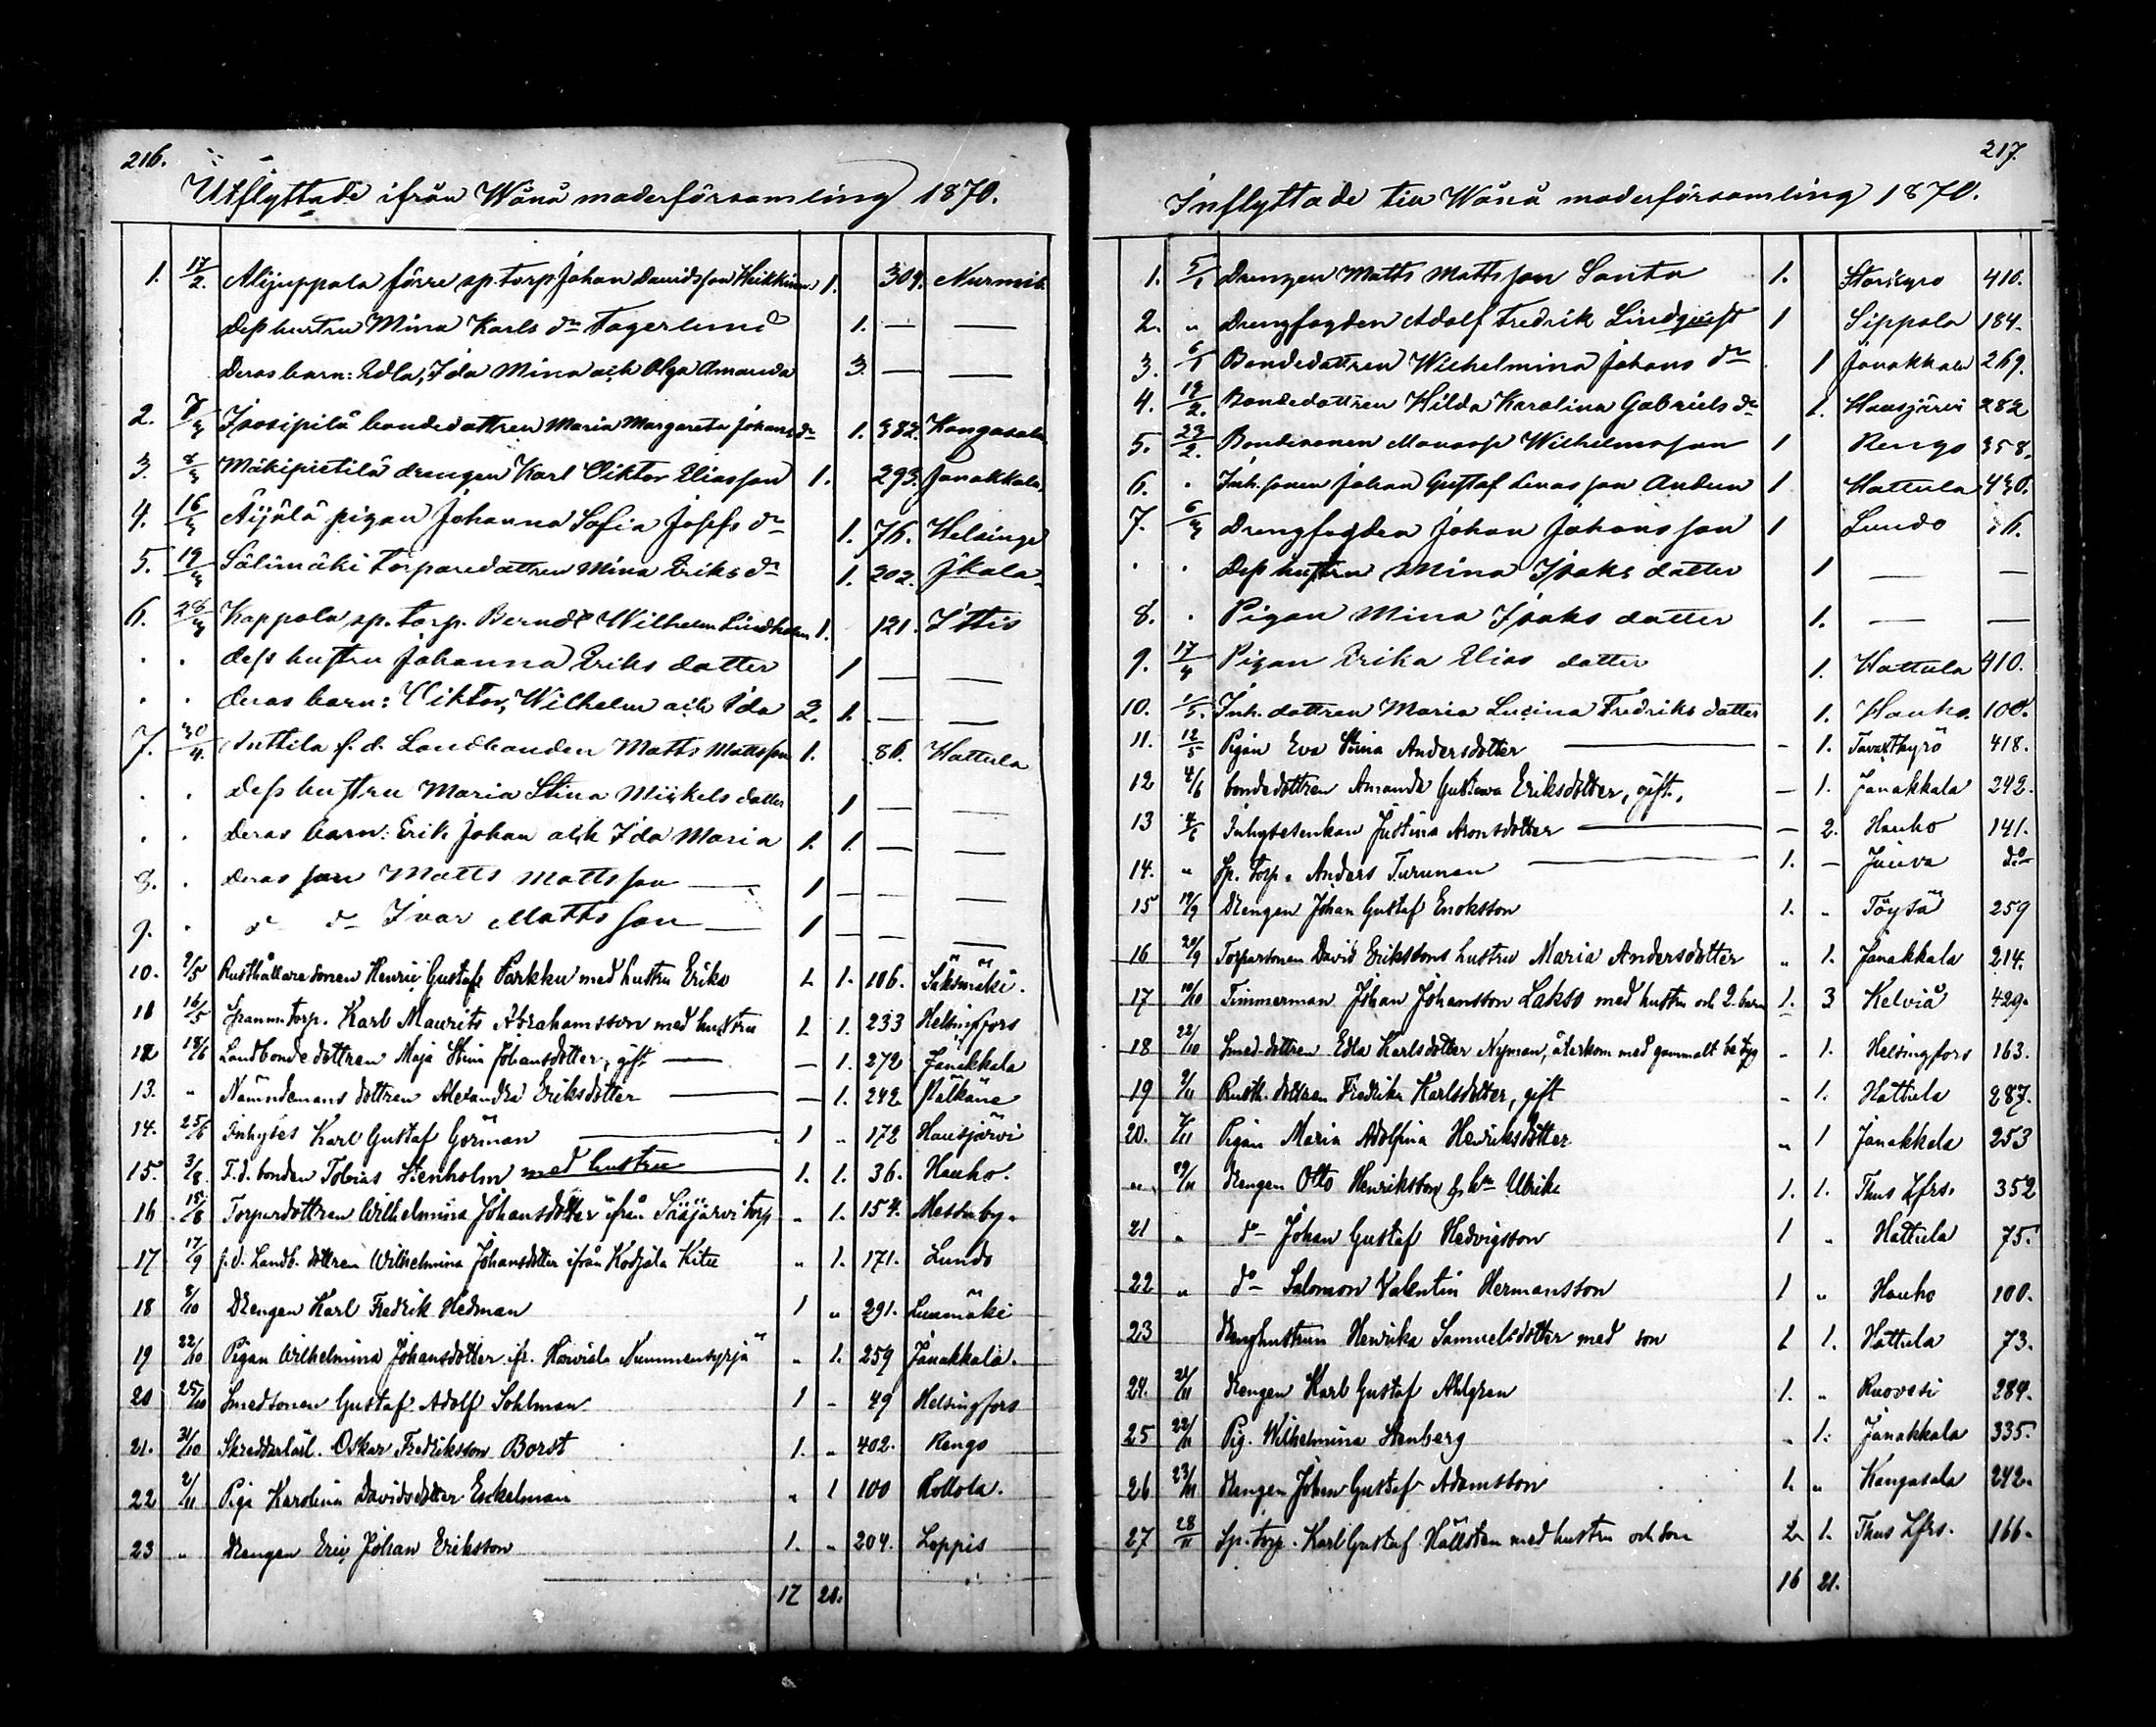 216.
Utflyttade ifrån Wånå moderförsamling 1870.
1. 17/2. Alijuppala förre sp. torp Johan Davidsson Heikkinen 1. 309. Nurmis.
Dess hustru Mina Karls dr Fagerlund 1. — —
Deras barn: Edla, Ida Mina och Olga Amanda 3. — —
2. 7/3 Isosipilä bondedottren Maria Margareta Johans dr 1. 382. Kangasala
3. 8/3 Mäkipietilä drengen Karl Viktor Eliasson 1. 293. Janakkala.
4. 16/3 Äijälä pigan Johanna Sofia Josefs dr 1. 76. Helsinge
5. 19/3 Sälimäki torparedottren Mina Eriks dr 1. 202. Ikala.
6. 28/3 Kappola sp. torp. Berndt Wilhelm Lindholm 1. 121. Ittis
. . dess hustru Johanna Eriks dotter 1 — —
. . deras barn: Viktor, Wilhelm och Ida 2. 1. — —
7. 30/4. Anttila f. d. Landbonden Matts Mattsson 1. 86. Hattula
. . dess hustru Maria Stina Mickels dotter 1 — —
. . Deras barn: Erik Johan och Ida Maria 1. 1. — —
8. . deras son Matts Mattsson — 1 — — —
9. . do do Ivar Mattsson — 1 — — —
10. 9/5 Rusthållare sonen Henric Gustaf Parkku med hustru Erika 1. 1. 106. Säksmäki.
11 16/5 Spanm. torp. Karl Maurits Abrahamsson med hustru 1. 1. 233 Helsingfors
12 18/6 Landbonde dottren Maja Stina Johansdotter, gift — — 1. 272 Janakkala
13. " Nämndemans dottren Alexandra Eriksdotter — — 1. 242 Pälkäne
14. 25/6 Inhyses Karl Gustaf Görman — 1 " 172 Hausjärvi
15. 3/8. F. d. bonden Tobias Stenholm med hustru — 1. 1. 36. Hauho.
16 18/8 Torpardottren Wilhelmina Johansdotter ifrån Sääjärvi torp " 1. 154. Messuby.
17 17/9 f. d. Landb. dottren Wilhelmina Johansdotter ifrån Kodjala Kitu " 1. 171. Lundo
18 8/10 Drengen Karl Fredrik Hedman 1 " 291. Luumäki
19 22/10 Pigan Wilhelmina Johansdotter ifr. Harviala Nummensyrjä " 1. 259 Janakkala.
20 25/10 Smedsonen Gustaf Adolf Sohlman 1 - 49 Helsingfors
21. 31/10 Skreddarlärl. Oskar Fredriksson Borst 1. " 402. Rengo
22 2/11 Piga Karolina Davidsdotter Eskelman " 1 100 Hollola.
23 " Drengen Eric Johan Eriksson 1. " 204. Loppis
17 20.
217.
Inflyttade till Wånå moderförsamling 1870.
1. 5/1 Drengen Matts Mattsson Santa 1. Storkyro 410.
2. " Drengfogden Adolf Fredrik Lindqvist 1 Sippola 184.
3. 6/1 Bondedottren Wilhelmina Johans dr 1 Janakkala 269.
4. 19/2. Bondedottren Hilda Karolina Gabriels dr 1. Hausjärvi 282
5. 23/2. Bondesonen Manasse Wilhelmsson 1 Rengo 358.
6. . Inh. sonen Johan Gustaf Linasson Anden 1 Hattula 430.
7. 6/3 Drengfogden Johan Johansson 1 Lundo 16.
. . Dess hustru Mina Isaks dotter 1 — —
8. . Pigan Mina Isaks dotter 1. — —
9. 17/4 Pigan Erika Elias dotter 1. Hattula 410.
10. 1/5. Inh. dottren Maria Lucina Fredriks dotter 1. Hauho. 100.
11. 12/5 Pigan Eva Stina Andersdotter — - 1. Tavastkyrö 418.
12 4/6 bondedottren Amanda Gustava Eriksdotter, gift, — 1. Janakkala 242.
13 4/6 Inhysesenkan Justina Aronsdotter — — 2. Hauho 141.
14. " Sp. torp. Anders Turunen — 1. — Jauva do
15 19/9 Drengen Johan Gustaf Enoksson 1. " Töysä 259
16 20/9 Torparsonen David Erikssons hustru Maria Andersdotter " 1. Janakkala 214.
17 10/10 Timmerman Johan Johansson Lakso med hustru och 2. barn 1. 3 Kelviå 429.
18 22/10 Smed dottren Edla Karlsdotter Nyman, återkom med gammalt betyg " 1. Helsingfors 163.
19 9/11 Rusth. dottren Fredrika Karlsdotter, gift " 1. Hattula 287.
20. "/11 Pigan Maria Adolfina Henriksdotter " 1 Janakkala 253
" 19/11 Drengen Otto Henriksson o. hru Ulrika 1. 1. Thus Lfrs. 352
21 " do Johan Gustaf Hedvigsson 1 " Hattula 75.
22 " do Salomon Valentin Hermansson 1 " Hauho 100.
23 Drenghustrun Henrika Samuelsdotter med son 1 1. Hattula 73.
24. 21/11 Drengen Karl Gustaf Ahlgren 1. " Ruovesi 284.
25 22/11 Pig. Wilhelmina Stenberg " 1. Janakkala 335.
26 23/11 Drengen Johan Gustaf Adamsson 1. " Kangasala 242.
27 28/11 Sp. torp. Karl Gustaf Hällsten med hustru och son 2. 1. Thus Lfrs. 166.
16 21.